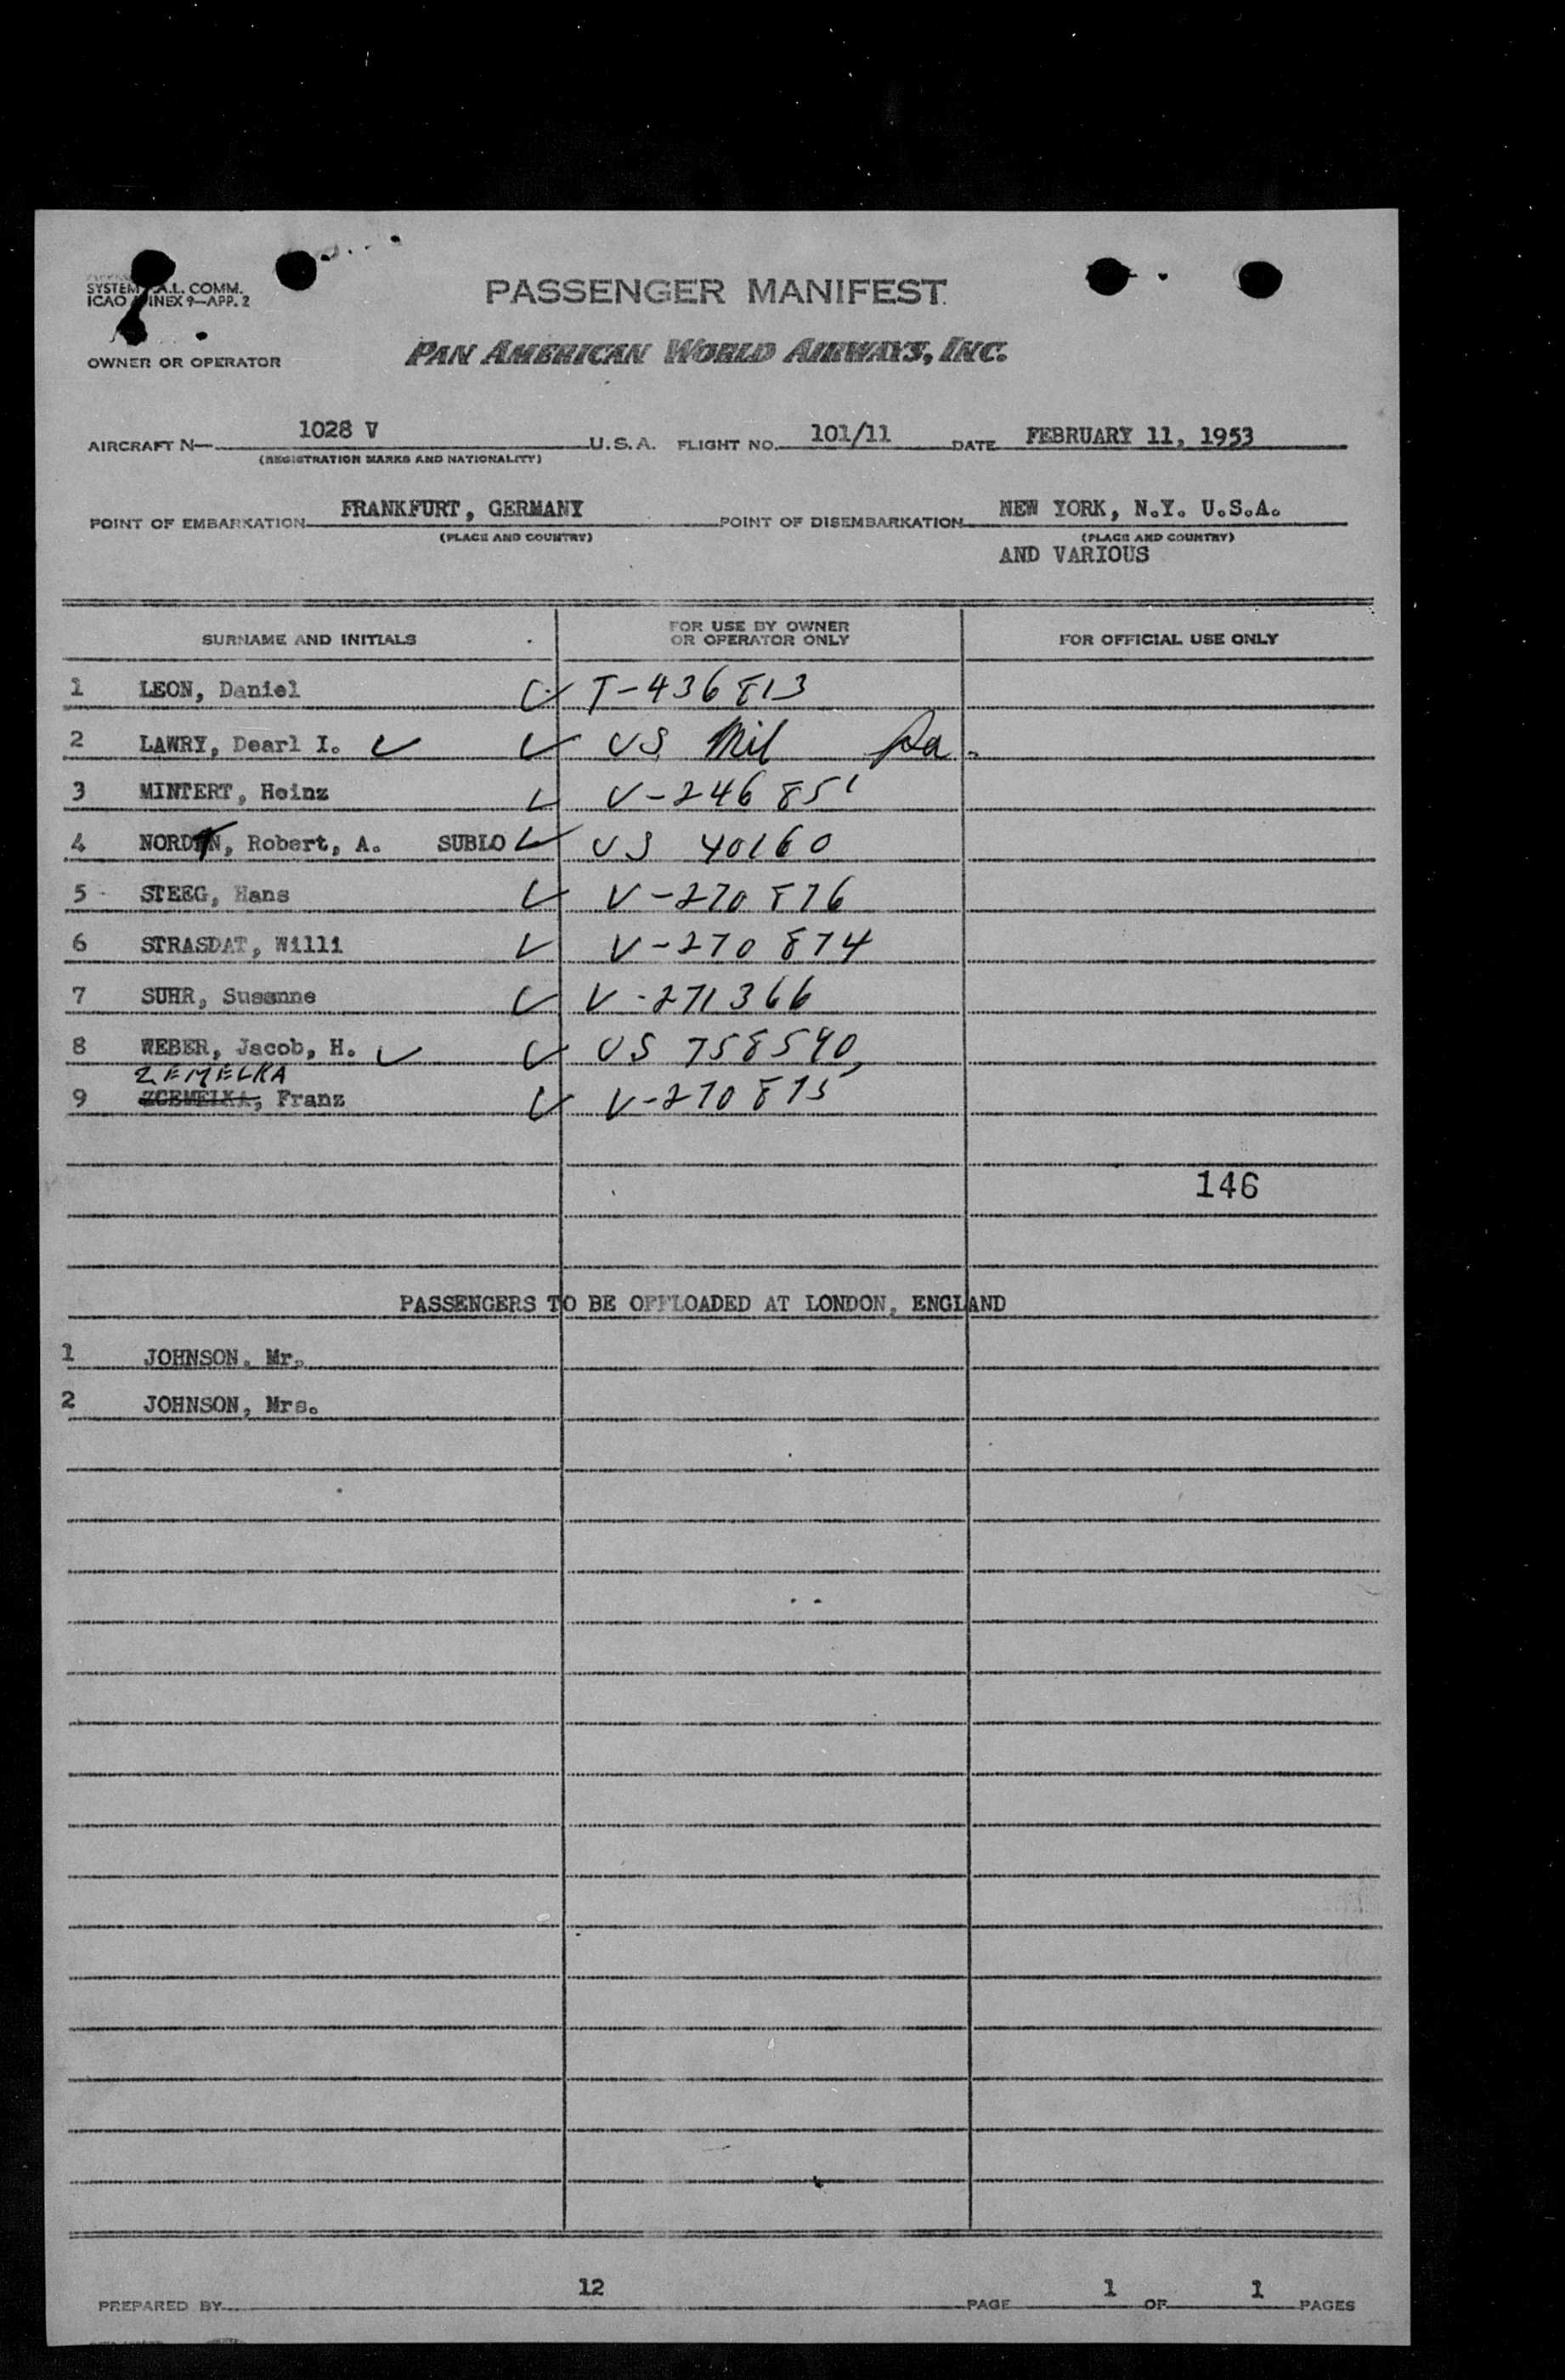 SYSTEM A.L. COMM.
ICAO ANNEX 9—APP. 2
PASSENGER MANIFEST
OWNER OR OPERATOR PAN AMERICAN WORLD AIRWAYS, INC.
AIRCRAFT N— 1028 V U.S.A. FLIGHT NO. 101/11 DATE FEBRUARY 11, 1953
(REGISTRATION MARKS AND NATIONALITY)
POINT OF EMBARKATION FRANKFURT, GERMANY POINT OF DISEMBARKATION NEW YORK, N.Y. U.S.A.
(PLACE AND COUNTRY) (PLACE AND COUNTRY)
AND VARIOUS
SURNAME AND INITIALS FOR USE BY OWNER OR OPERATOR ONLY FOR OFFICIAL USE ONLY
1 LEON, Daniel T-436813
2 LAWRY, Dearl I. US Mil
3 MINTERT, Heinz V-246851
4 Robert, A. SUBLO US 40160
5 STEEG, Hans V-270876
6 STRASDAT, Willi V-270874
7 SUHR, Susanne V-271366
8 WEBER, Jacob, H. US 758590
ZEMELKA
9 ZCEMELKA, Franz V-270875
146
PASSENGERS TO BE OFFLOADED AT LONDON, ENGLAND
1 JOHNSON, Mr.
2 JOHNSON, Mrs.
12
PREPARED BY PAGE 1 OF 1 PAGES